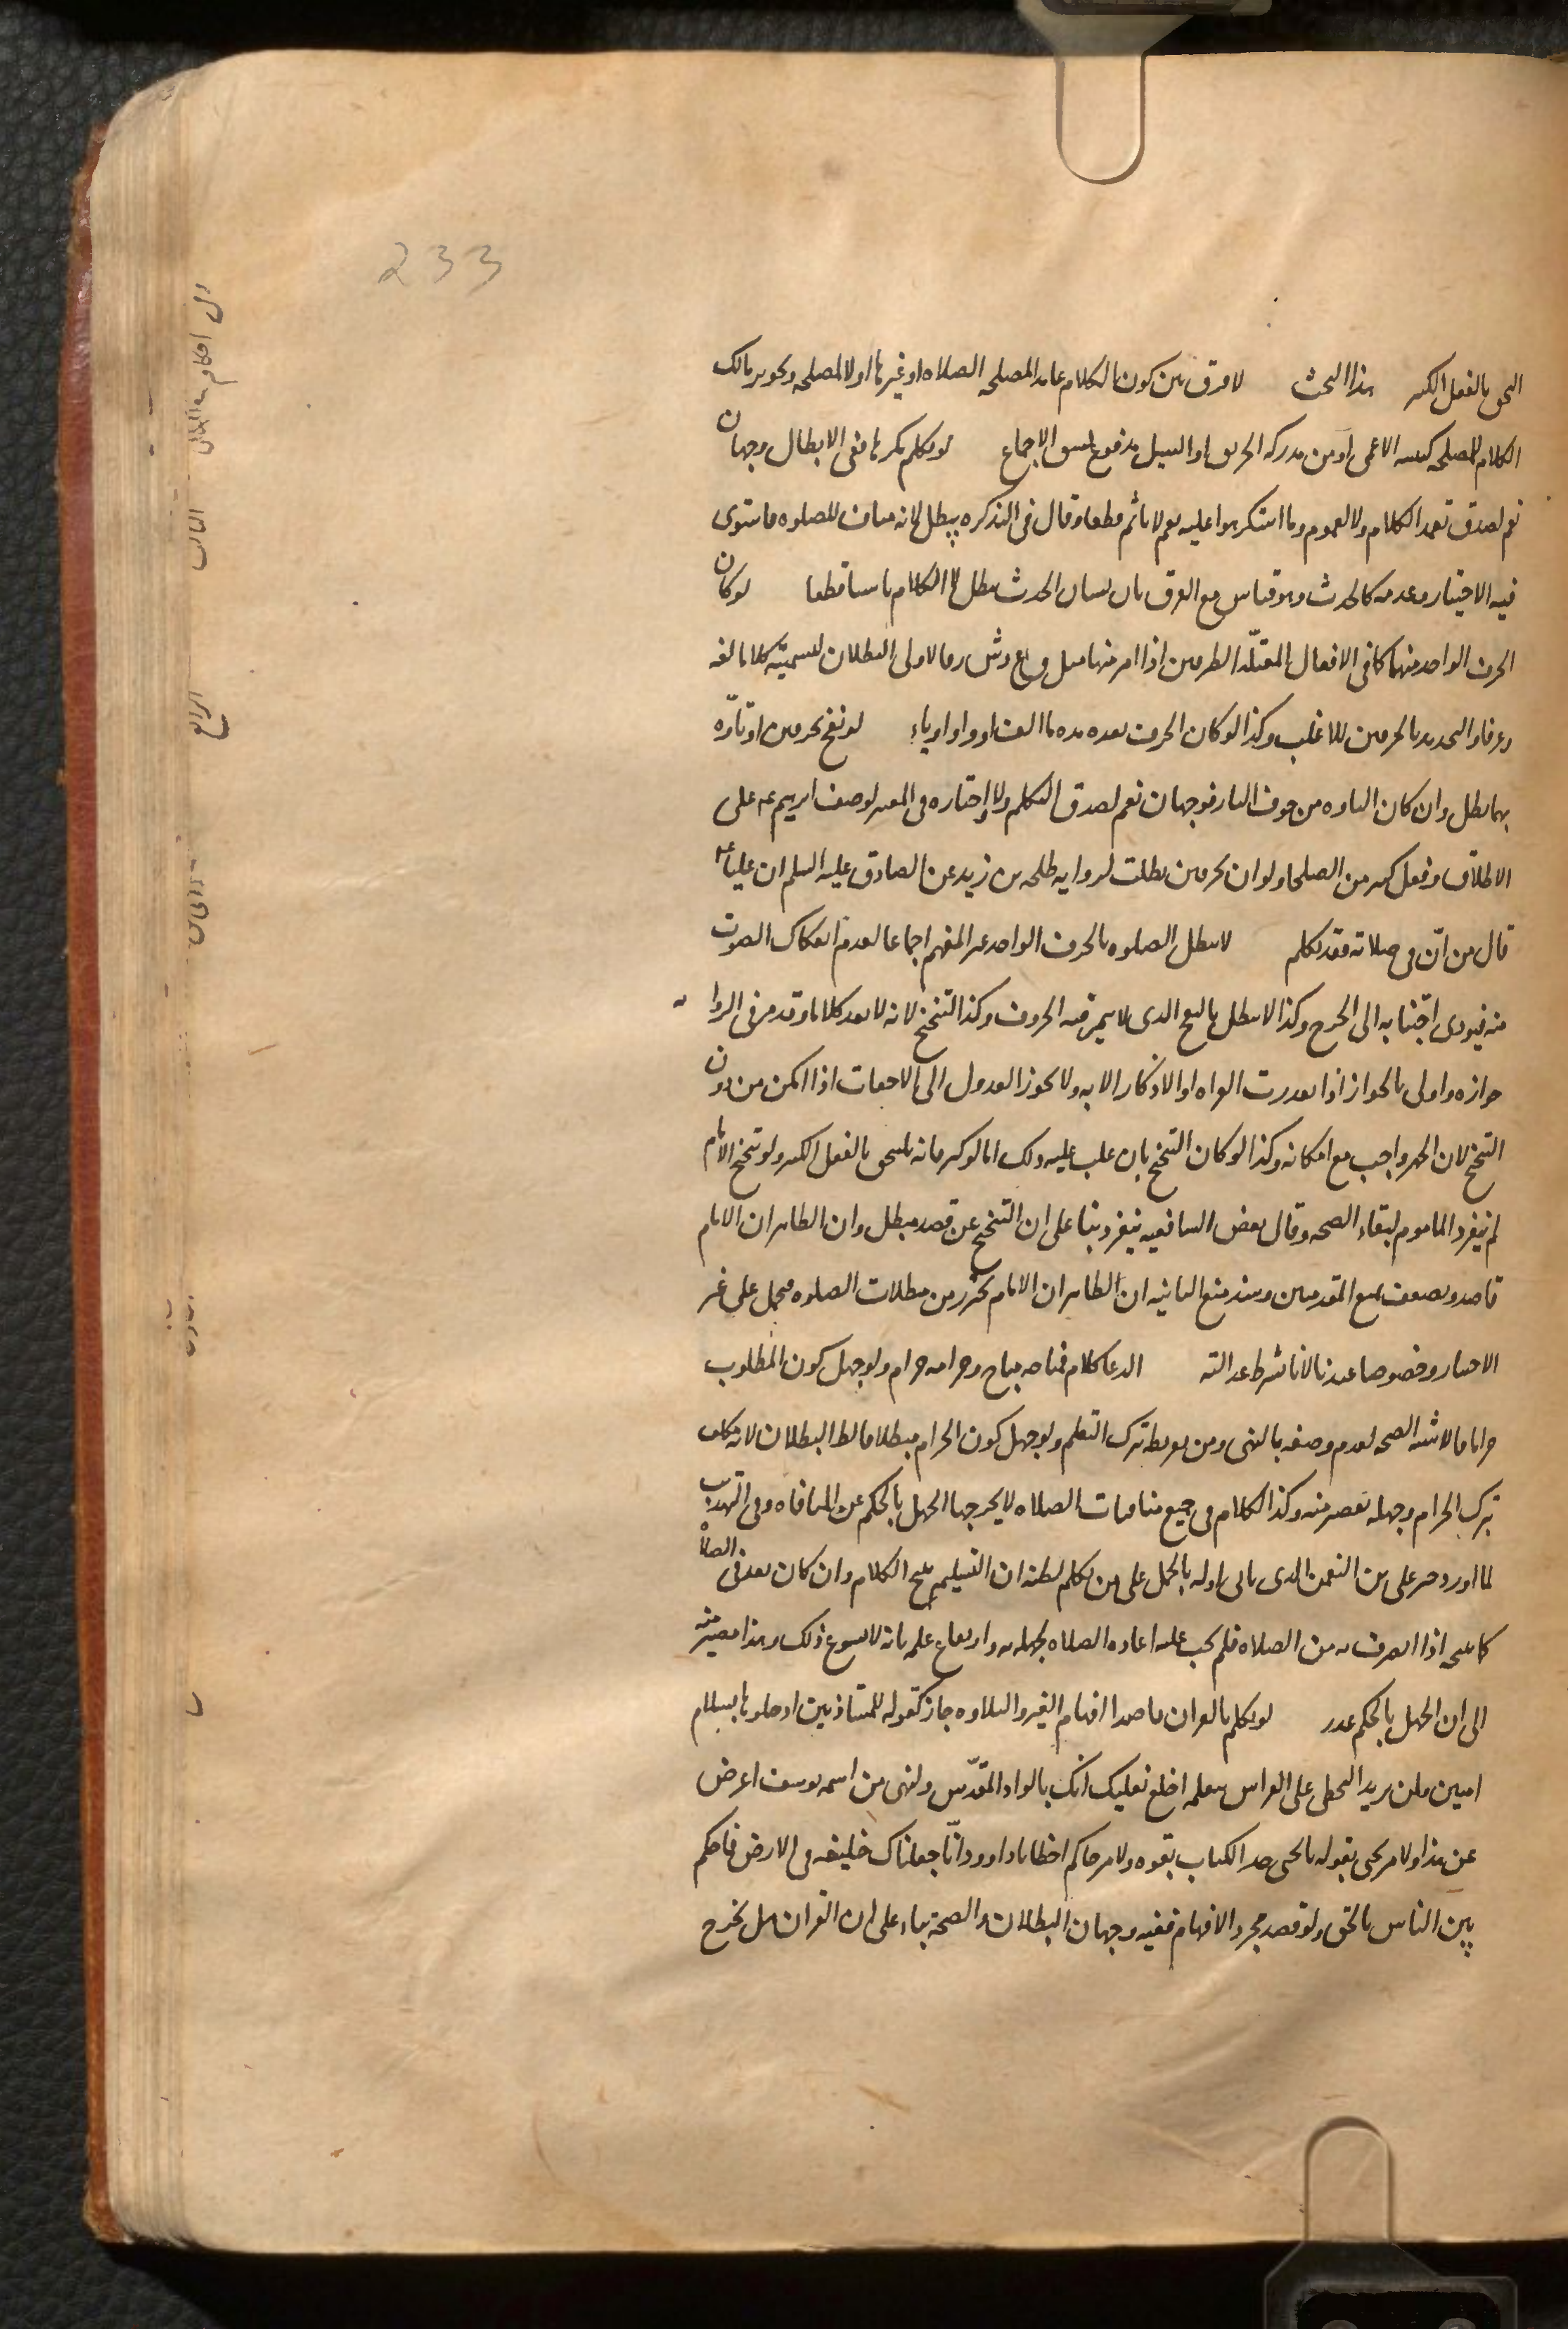 233
التحق بالفعل الكثير هذا البحث لا فرق بين كون الكلام عامدا لمصلحة الصلاة او غيرها او لا لمصلحة وتجويز مالك
الكلام لمصلحة كتنبيه الاعمى او من يدركه الحريق او السيل مدفوع بسبق الاجماع لو تكلم مكرها ففي الابطال وجهان
نعم لصدق تعمد الكلام ولا لعموم وما استكرهوا عليه نعم لا ياثم قطعا وقال في التذكرة يبطل لانه مناف للصلوة فاستوى
فيه الاختيار وعدمه كالحدث وهو قياس مع الفرق بان نسيان الحدث يبطل لا الكلام ناسيا قطعا لو كان
الحرف الواحد مفهما كما في الافعال المعتلة الطرفين اذا امر منها مثل ق وع وش ر فالاولى البطلان لتسميته كلاما لغة
وعرفا والتحديد بالحرفين للاغلب وكذا لو كان الحرف بعده مدة ما الف او واو او ياء لو نفخ بحرفين او تاوه
بهما بطل وان كان التاوه من خوف النار فوجهان نعم لصدق التكلم ولا واختاره في المعتبر لوصف ابرهيم عه على
الاطلاق وفعل كثير من الصلحا ولو ان بحرفين بطلت لرواية طلحه بن زيد عن الصادق عليه السلم ان عليا عه
قال من ان في صلاته فقد تكلم لا تبطل الصلوة بالحرف الواحد غير المفهم اجماعا لعدم انفكاك الصوت
منه فيودي اجتنابه الى الحرج وكذا لا تبطل بالنفخ الذي لا يميز فيه الحروف وكذا التنحنح لانه لا يعد كلاما وقد مر في الروا
جوازه واولى بالجواز اذا تعذرت القراه او الاذكار الا به ولا يجوز العدول الى الاخفات اذا امكن من دون
التنحنح لان الجهر واجب مع امكانه وكذا لو كان التنحنح بان غلب عليه ذلك اما لو كثر فانه يلتحق بالفعل الكثير ولو تنحنح الامام
لم ينفرد الماموم لبقاء الصحة وقال بعض الشافعيه ينفرد بنا على ان التنحنح عن قصد مبطل وان الظاهر ان الامام
قاصد ويضعف بمنع المقدمتين وسند منع الثانيه ان الظاهر ان الامام يتحرز من مبطلات الصلوه فيحمل على غير
الاختيار وخصوصا عندنا لانا نشرط عدالته الدعا كلام فمباحه مباح وحرامه حرام ولو جهل كون المطلوب
حراما فالاشبه الصحه لعدم وصفه بالنهي ومن تفريطه بترك التعلم ولو جهل كون الحرام مبطلا فالظ البطلان لانه مكلف
بترك الحرام وجهله تقصير منه وكذا الكلام في جميع منافيات الصلاه لا يخرجها الجهل بالحكم عن المنافاه وفي التهذيب
لما اورد خبر علي بن النعمن الذي ياتي اوله بالحمل على من تكلم لظنه ان التسليم يبيح الكلام وان كان بعد في الصلاه
كما يبيحه اذا انصرف من الصلاه فلم يجب عليه اعاده الصلاه لجهله به وارتفاع علمه بانه لا يسوغ ذلك وهذا مصير منه
الى ان الجهل بالحكم عذر لو تكلم بالقران قاصدا افهام الغير والتلاوه جاز كقوله للمستاذنين ادخلوها بسلام
امنين ولمن يريد التخطي على الفراش بنعله اخلع نعليك انك بالواد المقدس ولنهي من اسمه يوسف اعرض
عن هذا ولامر يحيى بقوله يا يحيى خذ الكتاب بقوه ولامر حاكم اخطا يا داوود انا جعلناك خليفه في الارض فاحكم
بين الناس بالحق ولو قصد مجرد الافهام ففيه وجهان البطلان والصحة بناء على ان القران هل يخرج